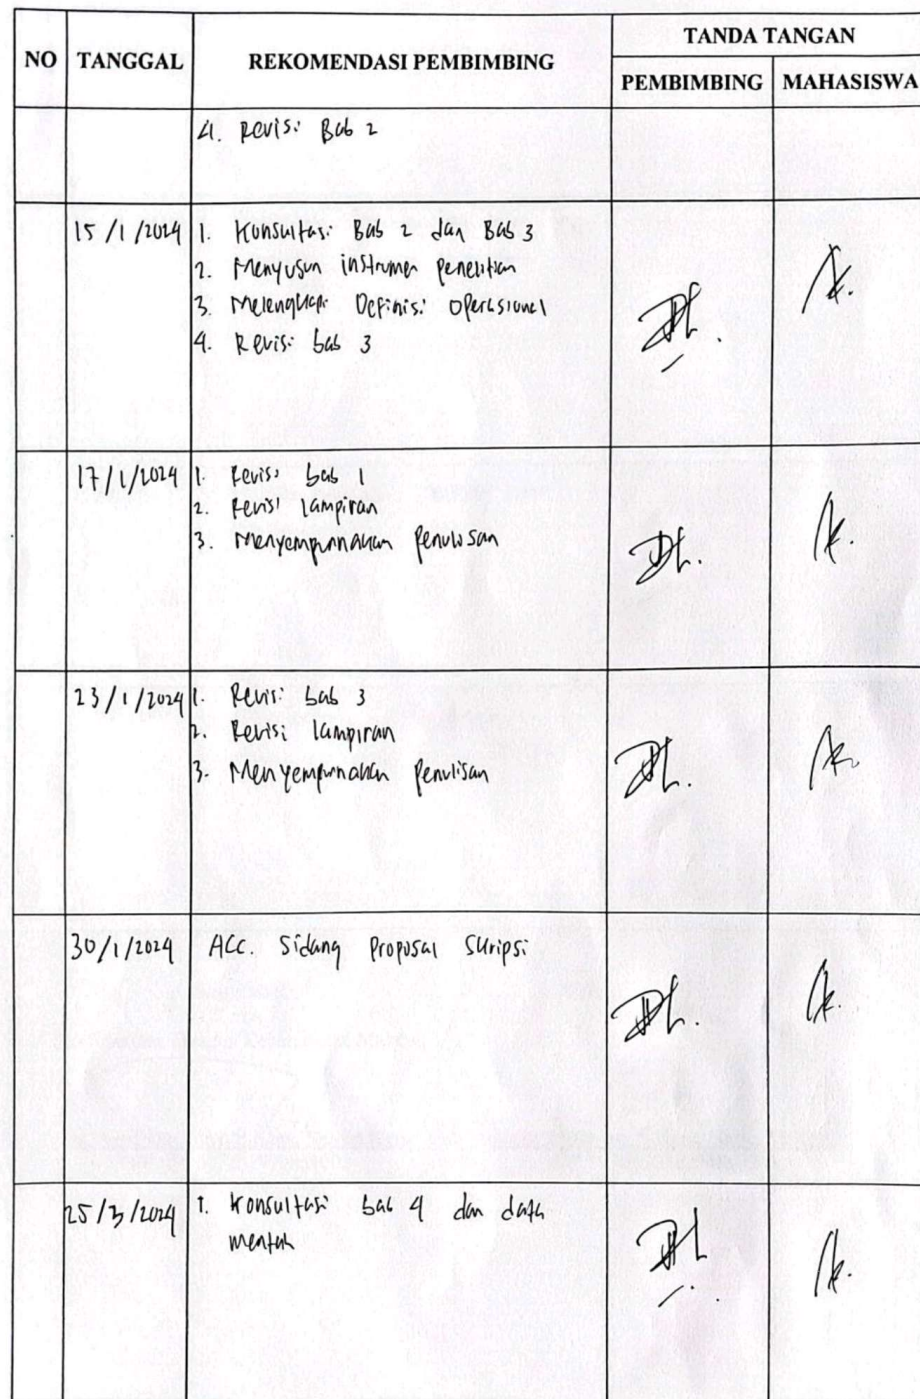 NO TANGGAL REKOMENDASI PEMBIMBING TANDA TANGAN
PEMBIMBING MAHASISWA
4. Revisi Bab 2
15/1/2024 1. Konsultasi Bab 2 dan Bab 3
2. Menyusun instrumen penelitian
3. Melengkapi Definisi Operasional
4. Revisi bab 3
17/1/2024 1. Revisi bab 1
2. Revisi lampiran
3. Menyempurnakan Penulisan
23/1/2024 1. Revisi bab 3
2. Revisi lampiran
3. Menyempurnakan Penulisan
30/1/2024 ACC. Sidang Proposal Skripsi
25/3/2024 1. Konsultasi bab 4 dan data
mentah